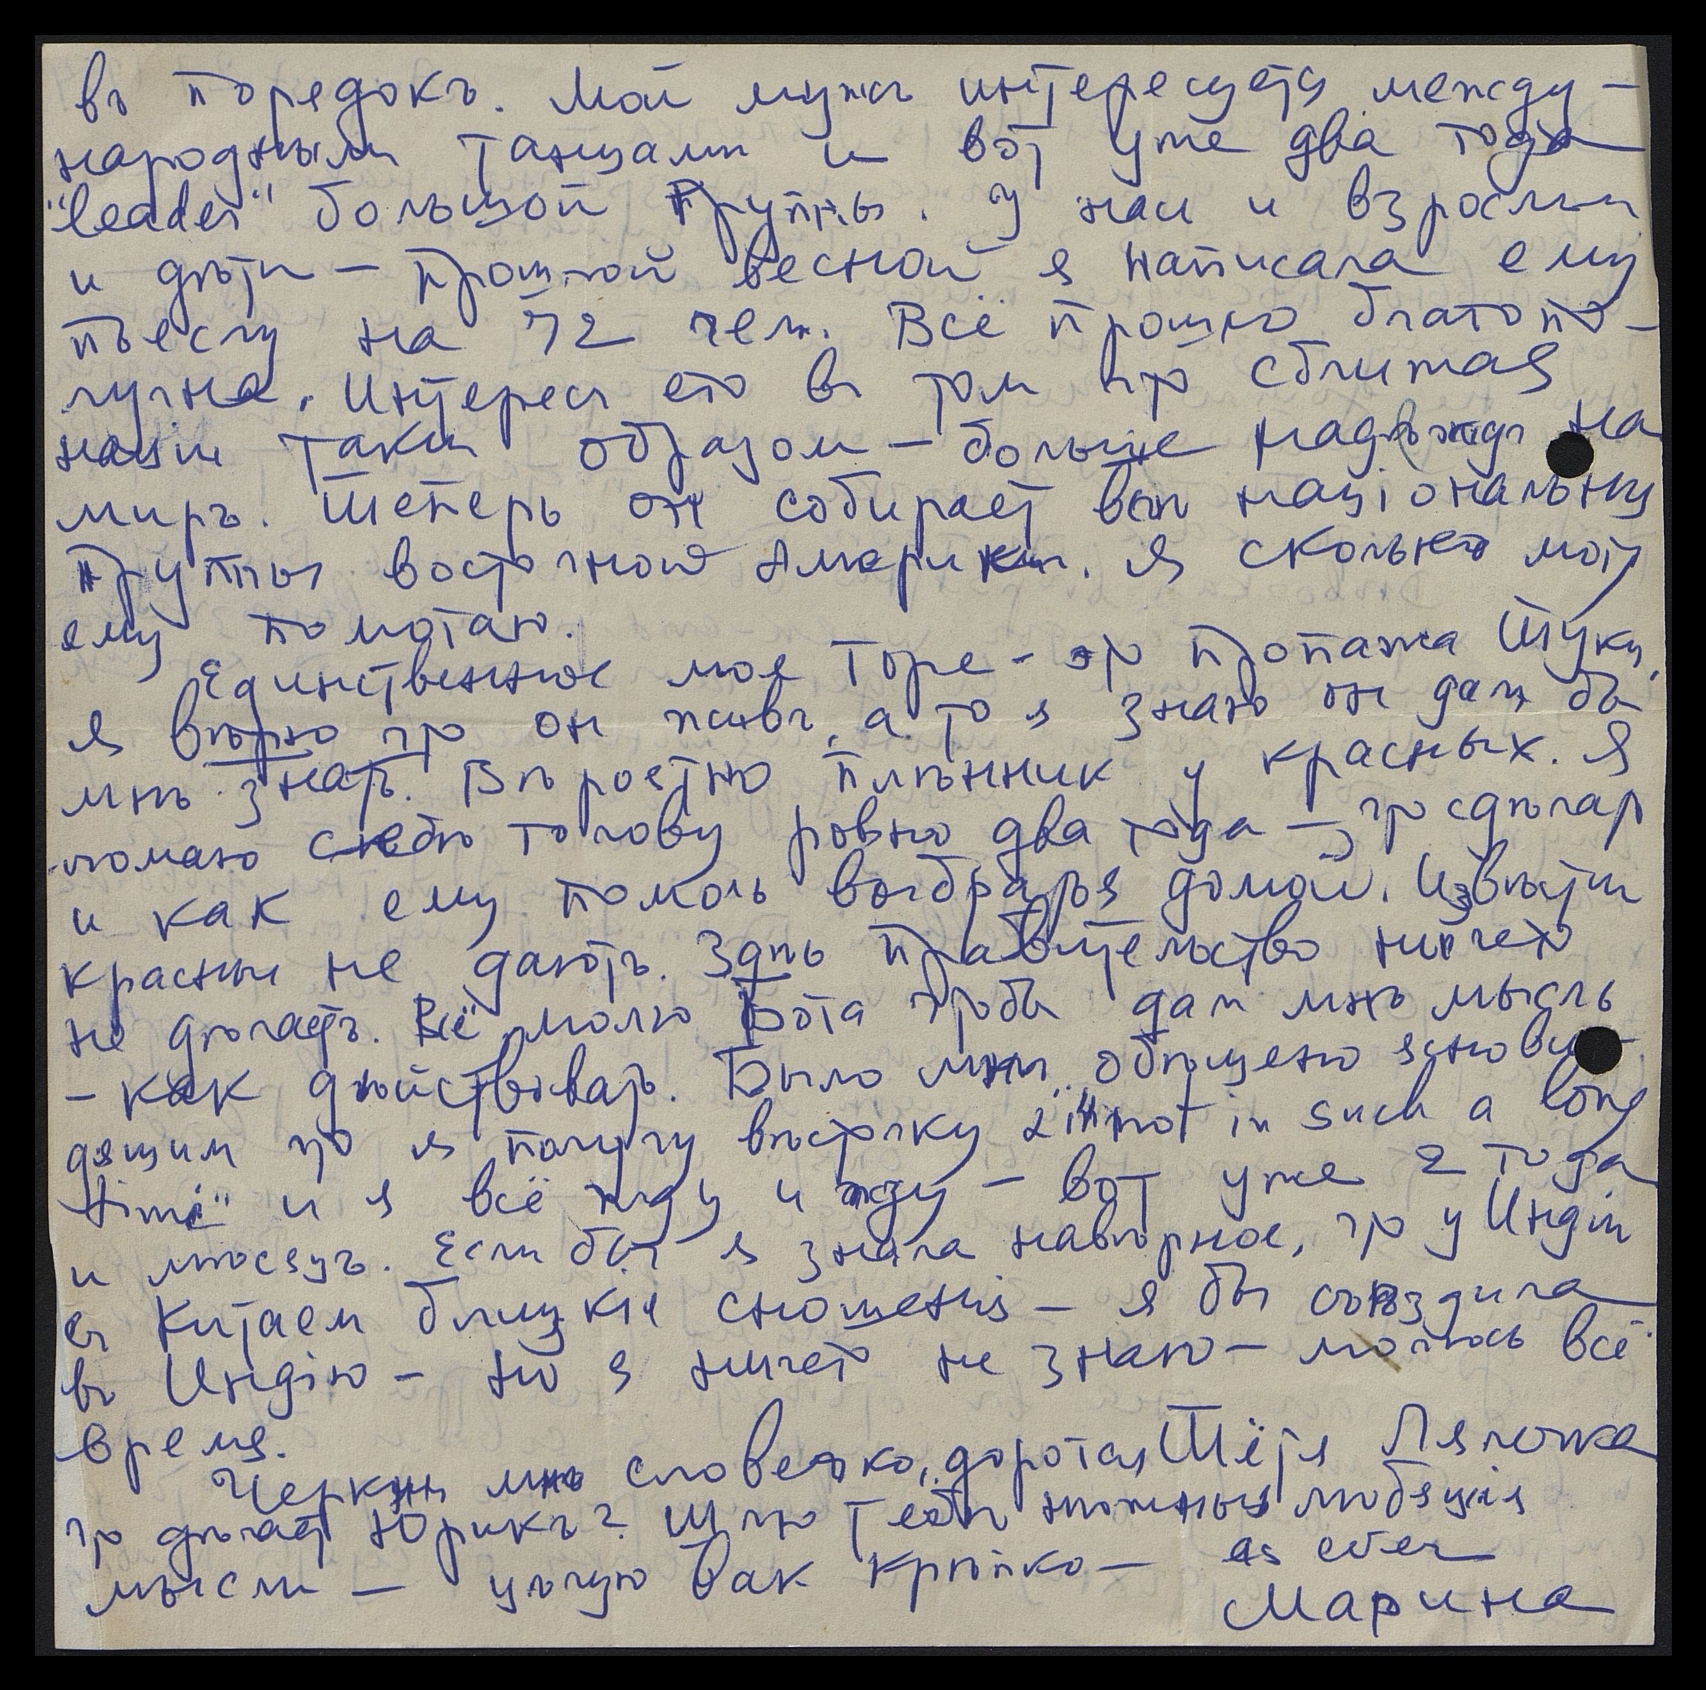 въ порядокъ. Мой мужъ интересуется между-
народными танцами и вот уже два года
"leader" большой группы. У нас и взрослыи
и дѣти — прошлой весной я написала ему
пьесу на 72 чел. Всё прошло благопо-
лучна. Интересъ его въ том что сближая
націи таким образом — больше надѣжды на
миръ. Теперь он собирает всѣ національныи
группы восточной Америки. Я сколько могу
ему помогаю.
Единственное мое горе - это пропажа Туки.
Я вѣрю что он живъ, а то я знаю он дал бы
мнѣ знать. Вѣроятно плѣнник у красных. Я
ломаю себѣ голову ровно два года — что сдѣлать
и как ему помочь выбраться домой. Извѣсти
красныи не даютъ. Здѣсь правительство ничего
не дѣлаетъ. Всё молю Бога чтобы дал мнѣ мысль
- как дѣйствовать. Было мнѣ обѣщено яснови-
дящим что я получу вѣсточку "in not in such a long
time" и я всё жду и жду — вот уже 2 года
и мѣсяцъ. Если бы я знала навѣрное, что у Индіи
съ Китаем близкія сношенія — я бы съѣздила
въ Индію — но я ничего не знаю — молюсь всё
время.
Черкни мнѣ словечко, дорогая Тётя Лялечка
что дѣлает Юрикъ? Шлю тебѣ нѣжныя любящія
мысли — цѣлую Вак крѣпко — as ever
Марина